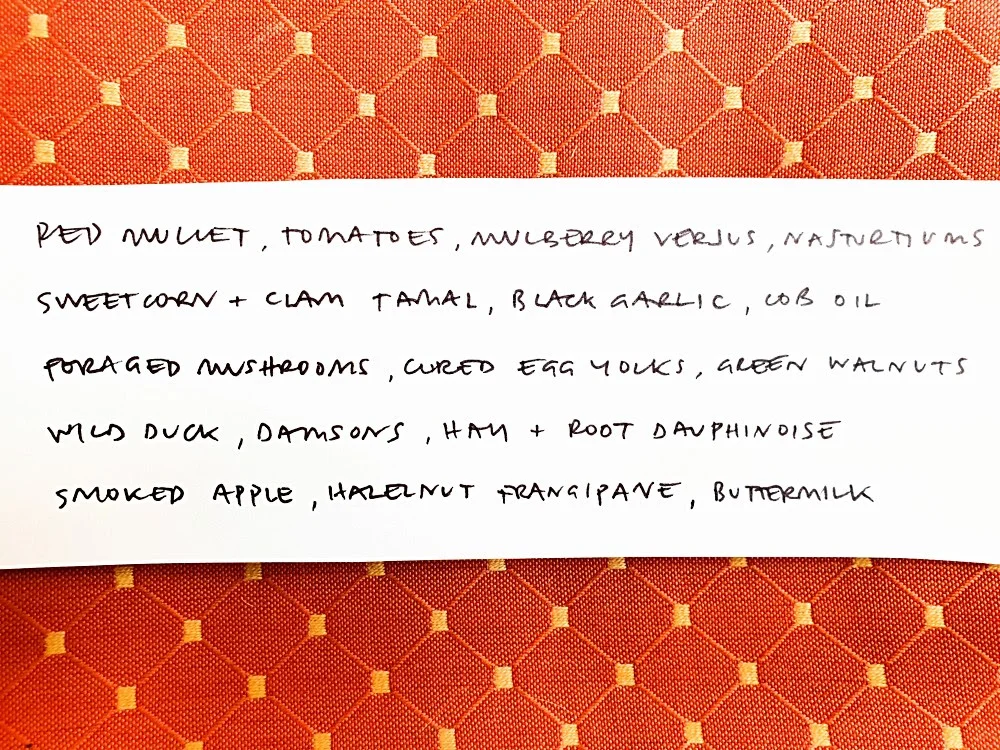 RED MULLET, TOMATOES, MULBERRY VERJUS, NASTURTIUMS
SWEETCORN + CLAM TAMAL, BLACK GARLIC, COB OIL
FORAGED MUSHROOMS, CURED EGG YOLKS, GREEN WALNUTS
WILD DUCK, DAMSONS, HAY + ROOT DAUPHINOISE
SMOKED APPLE, HAZELNUT FRANGIPANE, BUTTERMILK